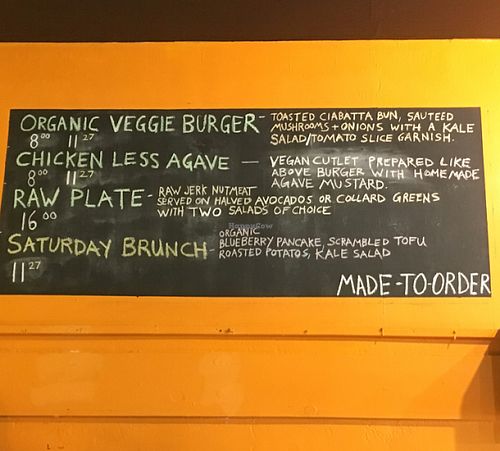 ORGANIC VEGGIE BURGER - TOASTED CIABATTA BUN, SAUTEED
MUSHROOMS + ONIONS WITH A KALE
8⁰⁰ 11²⁷ SALAD/TOMATO SLICE GARNISH.
CHICKEN LESS AGAVE — VEGAN CUTLET PREPARED LIKE
8⁰⁰ 11²⁷ ABOVE BURGER WITH HOMEMADE
AGAVE MUSTARD.
RAW PLATE - RAW JERK NUTMEAT
SERVED ON HALVED AVOCADOS OR COLLARD GREENS
16⁰⁰ WITH TWO SALADS OF CHOICE
SATURDAY BRUNCH - ORGANIC
BLUEBERRY PANCAKE, SCRAMBLED TOFU
ROASTED POTATOS, KALE SALAD
11²⁷
MADE-TO-ORDER